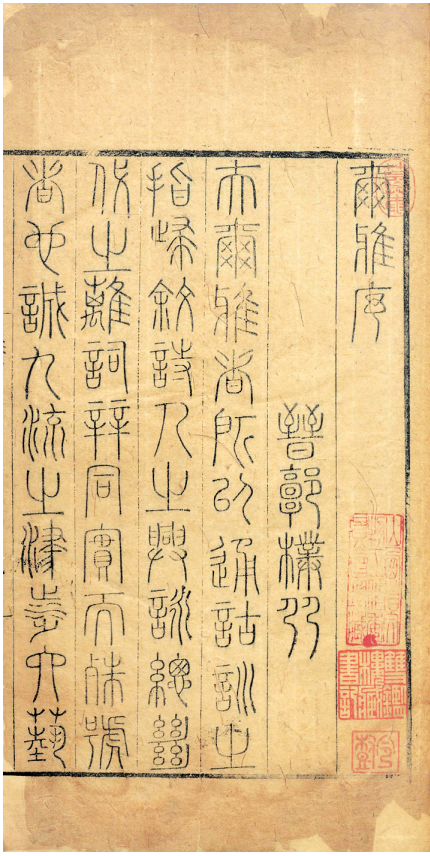 爾雅序
晉郭樸
夫爾雅者所以通詁訓之
指歸敘詩人之興詠總絕
代之離詞辯同實而殊號
者也誠九流之津涉六藝
雙鑑樓藏書記